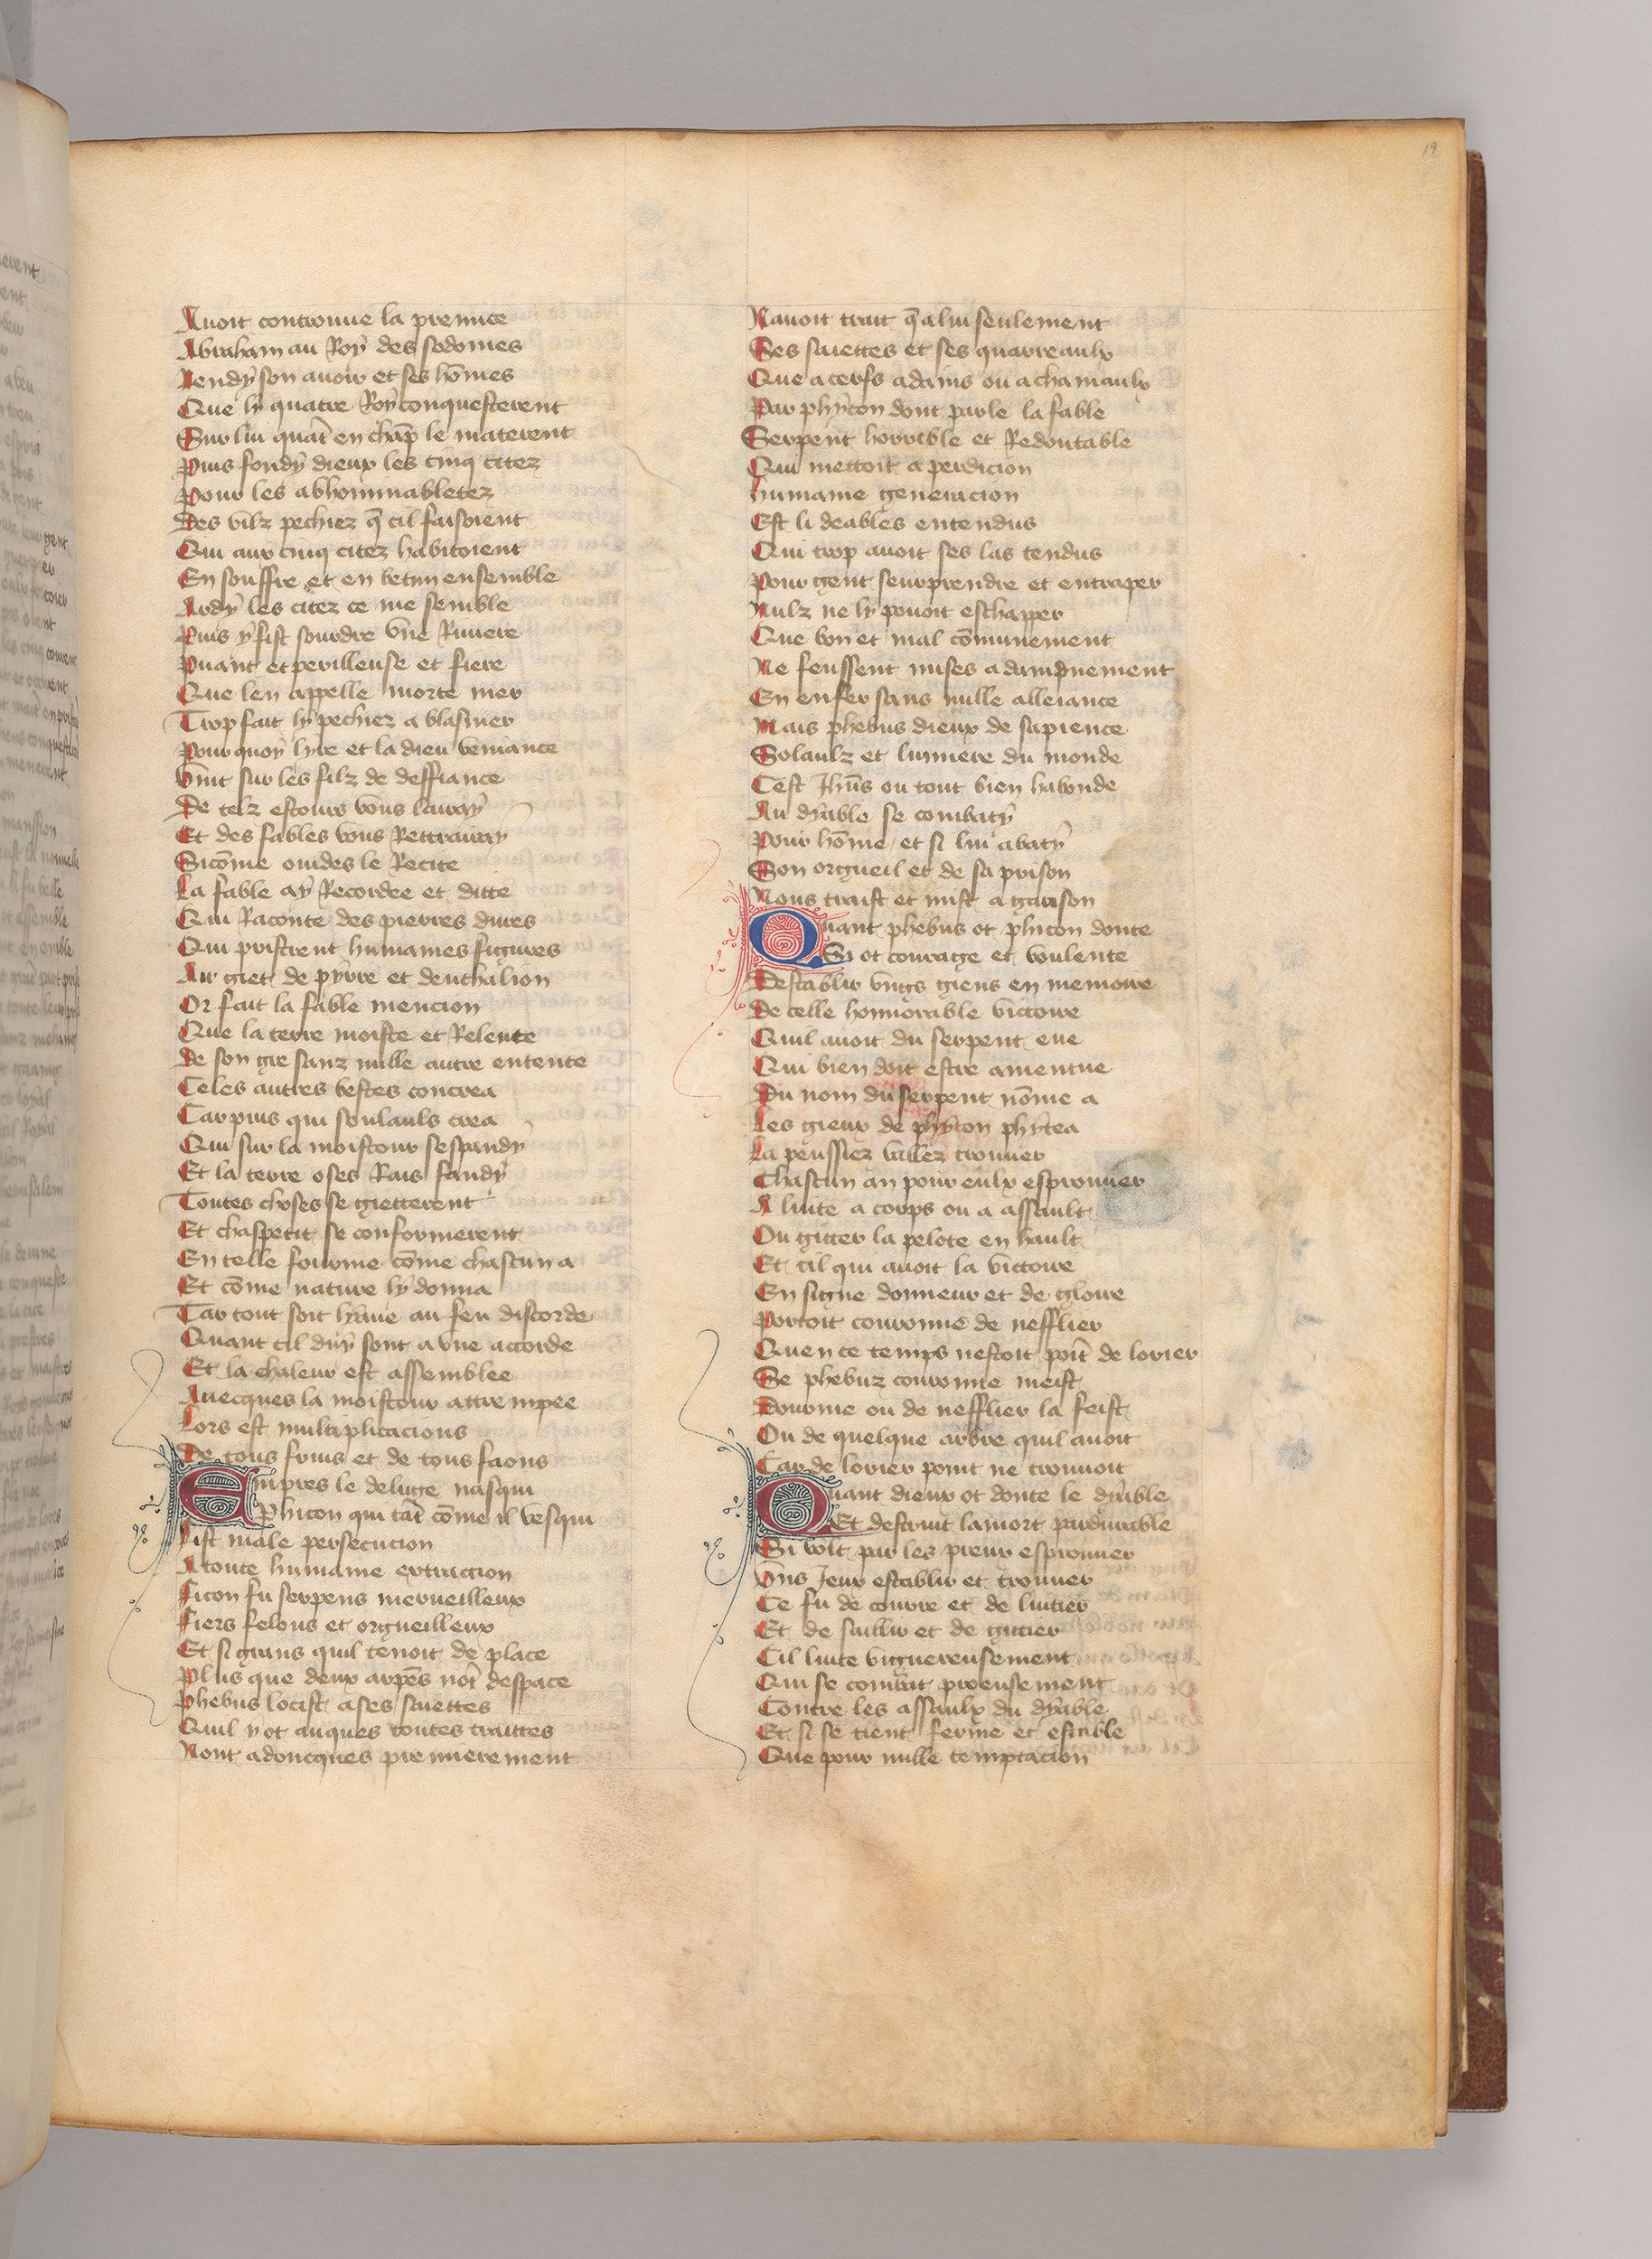 Auoit controuue la premice
Abraham au Roy des sodomes
Rendy son auoir et ses hōmes
Que ly quatre Roy conquesterent
Sur lui quāt en chāp le materent
Puis fondy dieux les cinq citez
Pour les abhominabletez
Des vilz pechiez q̄ cil faisoient
Qui aux cinq citez habitoient
En souffre et en betun ensemble
Ardy les citez ce me semble
Puis y fist sourdre vne Riuiere
Puant et perilleuse et fiere
Que len appelle morte mer
Trop fait ly pechiez a blasmer
Pour quoy lyre et la dieu veniance
Vint sur les filz de deffiance
De telz estours vous lairay
Et des fables vous Rettrairay
Sicōme ouides le Recite
La fable ay Recordee et ditte
Qui Raconte des pierres dures
Qui pristrent humaines figures
Au giet de pyrre et deuchalion
Or fait la fable mencion
Que la terre moiste et Relente
De son gre sanz nulle autre entente
Celes autres bestes concrea
Car puis qui soulauls crea
Qui sur la moistour sespandy
Et la terre oses Rais fandy
Toutes choses se gietterent
Et chaspetit se conformerent
En telle fourme cōme chascun a
Et cōme nature ly donna
Car tout soit lyaue au feu discorde
Quant cil duy sont a vne accorde
Et la chaleur est assemblee
Auecques la moistour attrempee
Lors est multiplicacions
De tous fruis et de tous faons
Empres le deluge nasqui
Phiton qui tāt cōme il vesqui
Fist male persecucion
A toute humaine extraccion
Ficon fu serpens merueilleux
Fiers felons et orgueilleux
Et si grans quil tenoit de place
Plus que deux arpēs nōt despace
Phebus locist a ses saiettes
Quil y ot auques toutes traittes
Nont adoncques premierement
Nauoit trait q̄ a lui seulement
Ses saiettes et ses quarreaulx
Que a cerfs a dains ou a chamaulx
Par phyton dont parle la fable
Serpent horrible et Redoutable
Qui mettoit a perdicion
humaine generacion
Est li deables entendus
Qui trop auoit ses las tendus
Pour gent seurprendre et entraper
Nulz ne ly pouoit eschapper
Que bon et mal cōmunement
Ne feussent mises a dampnement
En enfer sans nulle alleiance
Mais phebus dieux de sapience
Solaulz et lumiere du monde
Cest Jhūs ou tout bien habonde
Au dyable se combaty
Pour hōme et si lui abaty
Son orgueil et de sa prison
Nous traist et mist a garison
Quant phebus ot phiton donte
Si ot courage et voulente
Destablir vngs giens en memoire
De celle honnorable victoire
Quil auoit du serpent eue
Qui bien doit estre amentue
Du nom du serpent nōme a
Les gieux de phyton phytea
La peussiez vallez trouuer
Chascun an pour eulx esprouuer
A luite a corps ou a assault
Ou gitter la pelote en hault
Et cil qui auoit la victoire
En signe donneur et de gloire
Portoit couronne de nefflier
Quen ce temps nestoit poīt de lorier
Se phebuz couronne meist
Dourme ou de nefflier la feist
Ou de quelque arbre quil auoit
Car de lorier point ne trouuoit
Quant dieux ot donte le dyable
Et destruit la mort pardurable
Si volt par les preux esprouuer
Vns Jeux establir et trouuer
Ce fu de courre et de luitier
Et de saillir et de gitier
Cil luite viguereusement
Qui se combat proeusement
Contre les assaulx du dyable
Et si se tient ferme et estable
Que pour nulle temptacion
19